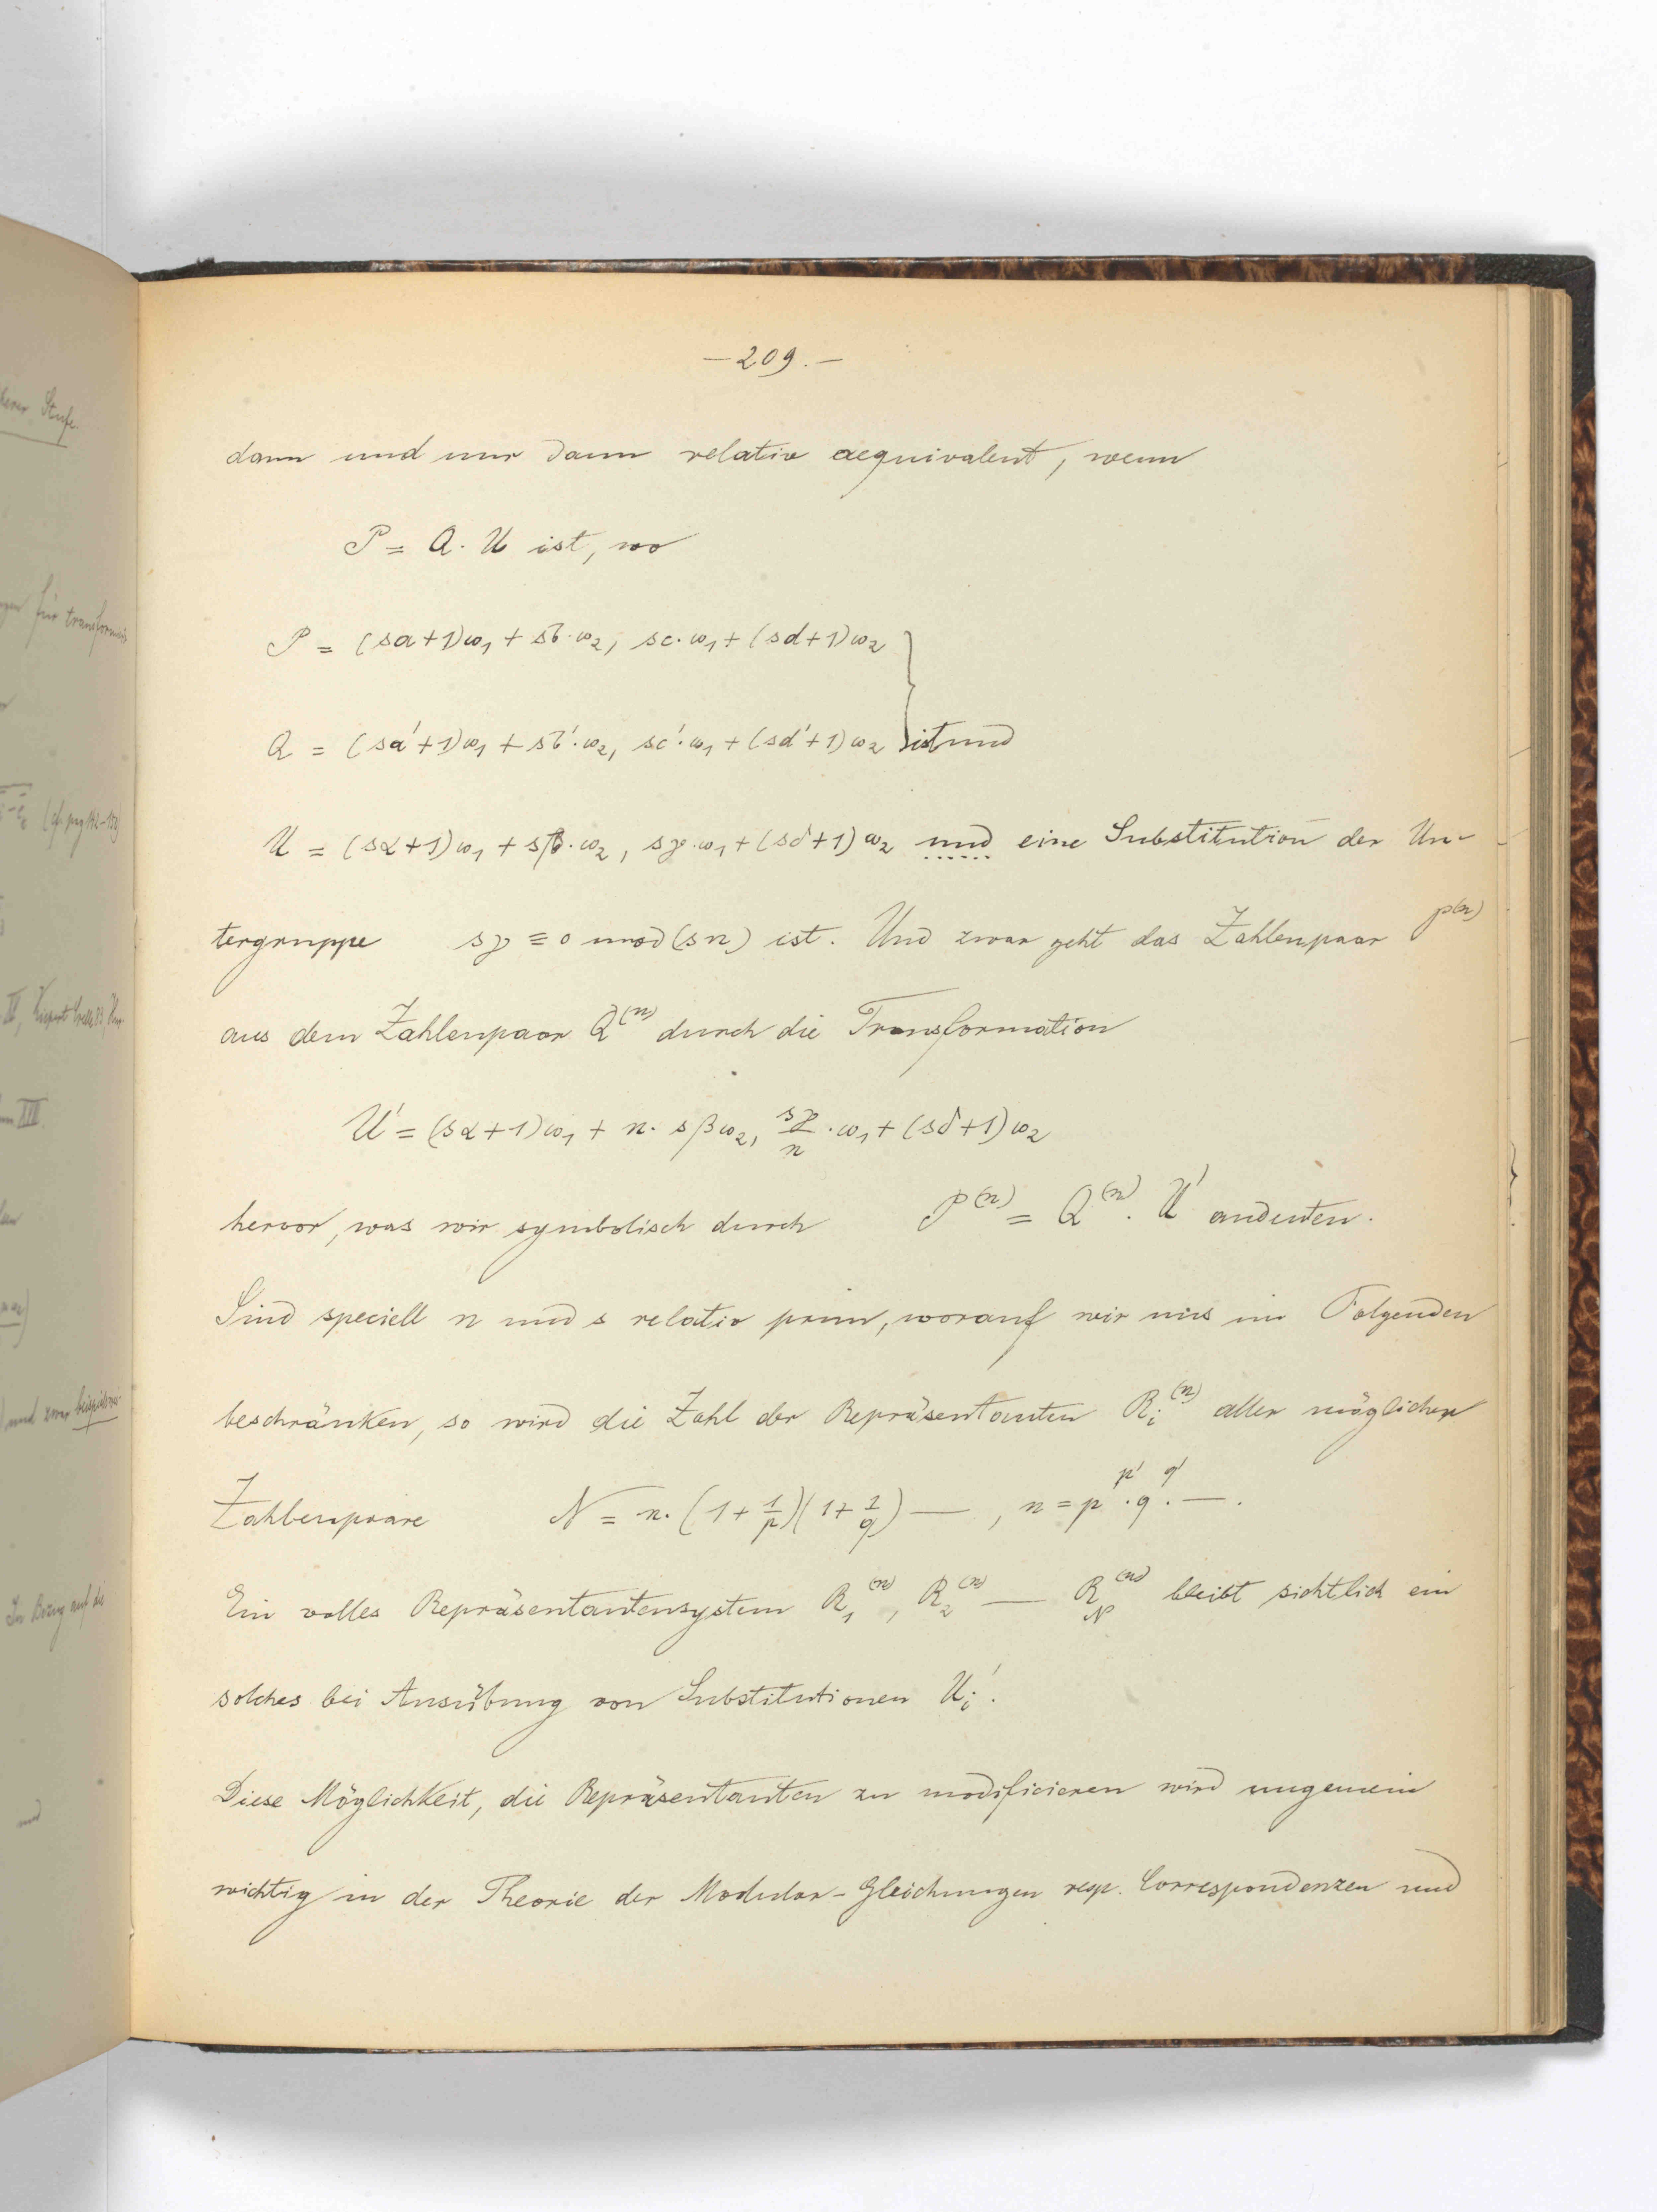 —209.—
dann und nur dann relativ aequivalent, wenn
P = Q. U ist, wo
P = (sa+1)ω₁ + sb·ω₂, sc·ω₁ + (sd+1)ω₂
Q = (sa'+1)ω₁ + sb'·ω₂, sc'·ω₁ + (sd'+1)ω₂ } ist und
U = (sα+1)ω₁ + sβ·ω₂, sγ·ω₁ + (sδ+1)ω₂ und eine Substitution der Un-
tergruppe sγ ≡ 0 mod (sn) ist. Und zwar geht das Zahlenpaar P⁽ⁿ⁾
aus dem Zahlenpaar Q⁽ⁿ⁾ durch die Transformation
U' = (sα+1)ω₁ + n· sβω₂, sγ/n ·ω₁ + (sδ+1)ω₂
hervor, was wir symbolisch durch P⁽ⁿ⁾ = Q⁽ⁿ⁾. U' andeuten.
Sind speciell n und s relativ prim, worauf wir uns im Folgenden
beschränken, so wird die Zahl der Repräsentanten Rᵢ⁽ⁿ⁾ aller möglichen
Zahlenpaare N = n. (1+1/p)(1+1/q) —, n = p^p'·q^q'·—.
Ein volles Repräsentantensystem R₁⁽ⁿ⁾, R₂⁽ⁿ⁾ — R_N⁽ⁿ⁾ bleibt sichtlich ein
solches bei Ausübung von Substitutionen Uᵢ'.
Diese Möglichkeit, die Repräsentanten zu modificieren wird ungemein
wichtig in der Theorie der Modular-Gleichungen resp. Correspondenzen und